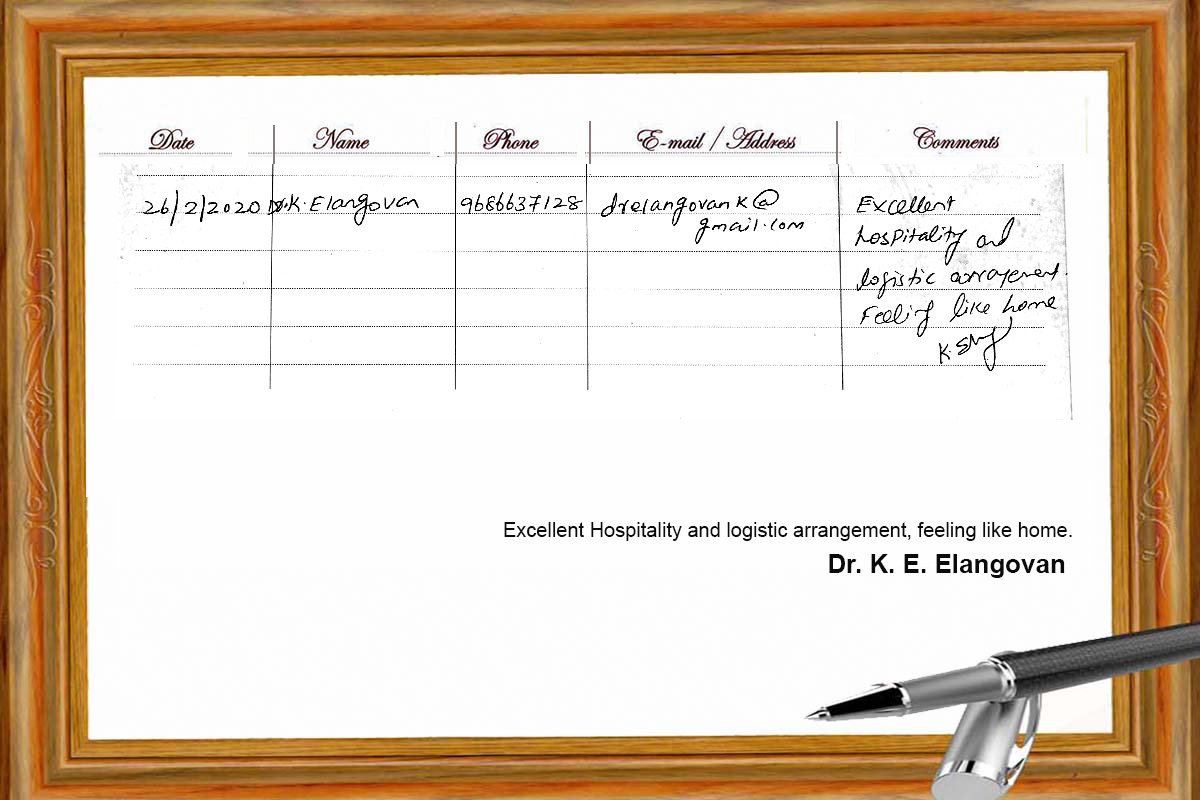 Date Name Phone E-mail / Address Comments
26/2/2020 Dr.K.Elangovan 9686637128 drelangovank@ Excellent
gmail.com hospitality and
logistic arrangement.
Feeling like home
Excellent Hospitality and logistic arrangement, feeling like home.
Dr. K. E. Elangovan